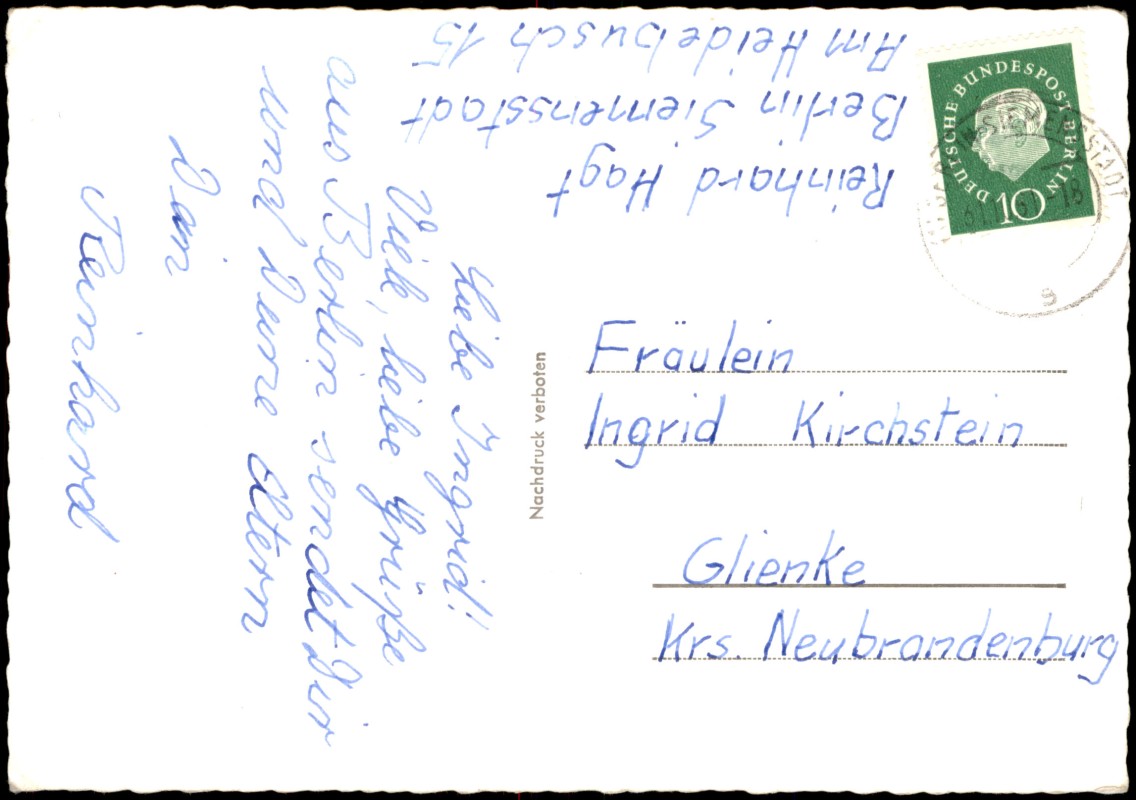 Reinhard Hagt
Berlin Siemensstadt
Am Heidebusch 15
DEUTSCHE BUNDESPOST BERLIN
10
18
a
Liebe Ingrid!
Viele, liebe Grüße
aus Berlin sendet Dir
und Deine Eltern
Dein
Reinhard
Nachdruck verboten
Fräulein
Ingrid Kirchstein
Glienke
Krs. Neubrandenburg